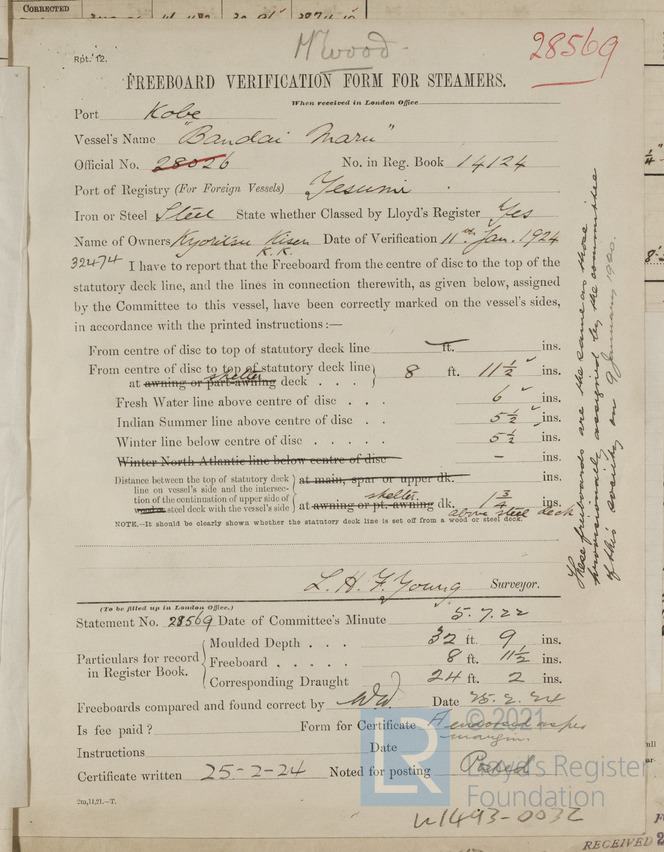 CORRECTED
Rpt. 12.
28569
FREEBOARD VERIFICATION FORM FOR STEAMERS.
When received in London Office
Port Kobe
Vessel's Name "Bandai Maru"
Official No. 28026 No. in Reg. Book 14124
Port of Registry (For Foreign Vessels)
Iron or Steel Steel State whether Classed by Lloyd's Register Yes
Name of Owners Kyoritsu Kisen K.K. Date of Verification 11th Jan. 1924
32474 I have to report that the Freeboard from the centre of disc to the top of the
statutory deck line, and the lines in connection therewith, as given below, assigned
by the Committee to this vessel, have been correctly marked on the vessel's sides,
in accordance with the printed instructions:—
From centre of disc to top of statutory deck line ft. ins.
From centre of disc to top of statutory deck line
shelter
at awning or part-awning deck . . . 8 ft. 11 1/2 ins.
Fresh Water line above centre of disc . . . 6 ins.
Indian Summer line above centre of disc . . 5 1/2 ins.
Winter line below centre of disc . . . . . 5 1/2 ins.
Winter North Atlantic line below centre of disc — ins.
Distance between the top of statutory deck line on vessel's side and the intersection of the continuation of upper side of wooden steel deck with the vessel's side
at main, spar or upper dk. ins.
shelter
at awning or pt. awning dk. 1 3/4 ins.
above steel deck
NOTE.—It should be clearly shown whether the statutory deck line is set off from a wood or steel deck.
These freeboards are the same as those
provisionally assigned by the committee
of this society on 9 January 1920.
L. H. F. Young Surveyor.
(To be filled up in London Office.)
Statement No. 28569 Date of Committee's Minute 5.7.22
Particulars for record in Register Book.
Moulded Depth . . . 32 ft. 9 ins.
Freeboard . . . . . 8 ft. 11 1/2 ins.
Corresponding Draught 24 ft. 2 ins.
Freeboards compared and found correct by Date 25.2.24
Is fee paid? Form for Certificate A endorsed as per
margin.
Instructions Date
Certificate written 25-2-24 Noted for posting Posted
2m,11,21.—T.
LR
© 2021
Lloyd's Register
Foundation
W1493-0032
RECEIVED